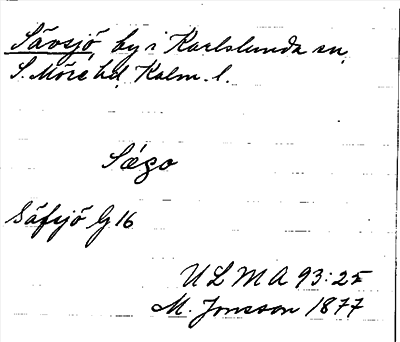 Sävsjö by i Karlslunda sn,
S. Möre hd, Kalm. l.
Säfsjö G 16
ULMA 93:25
M. Jonsson 1877